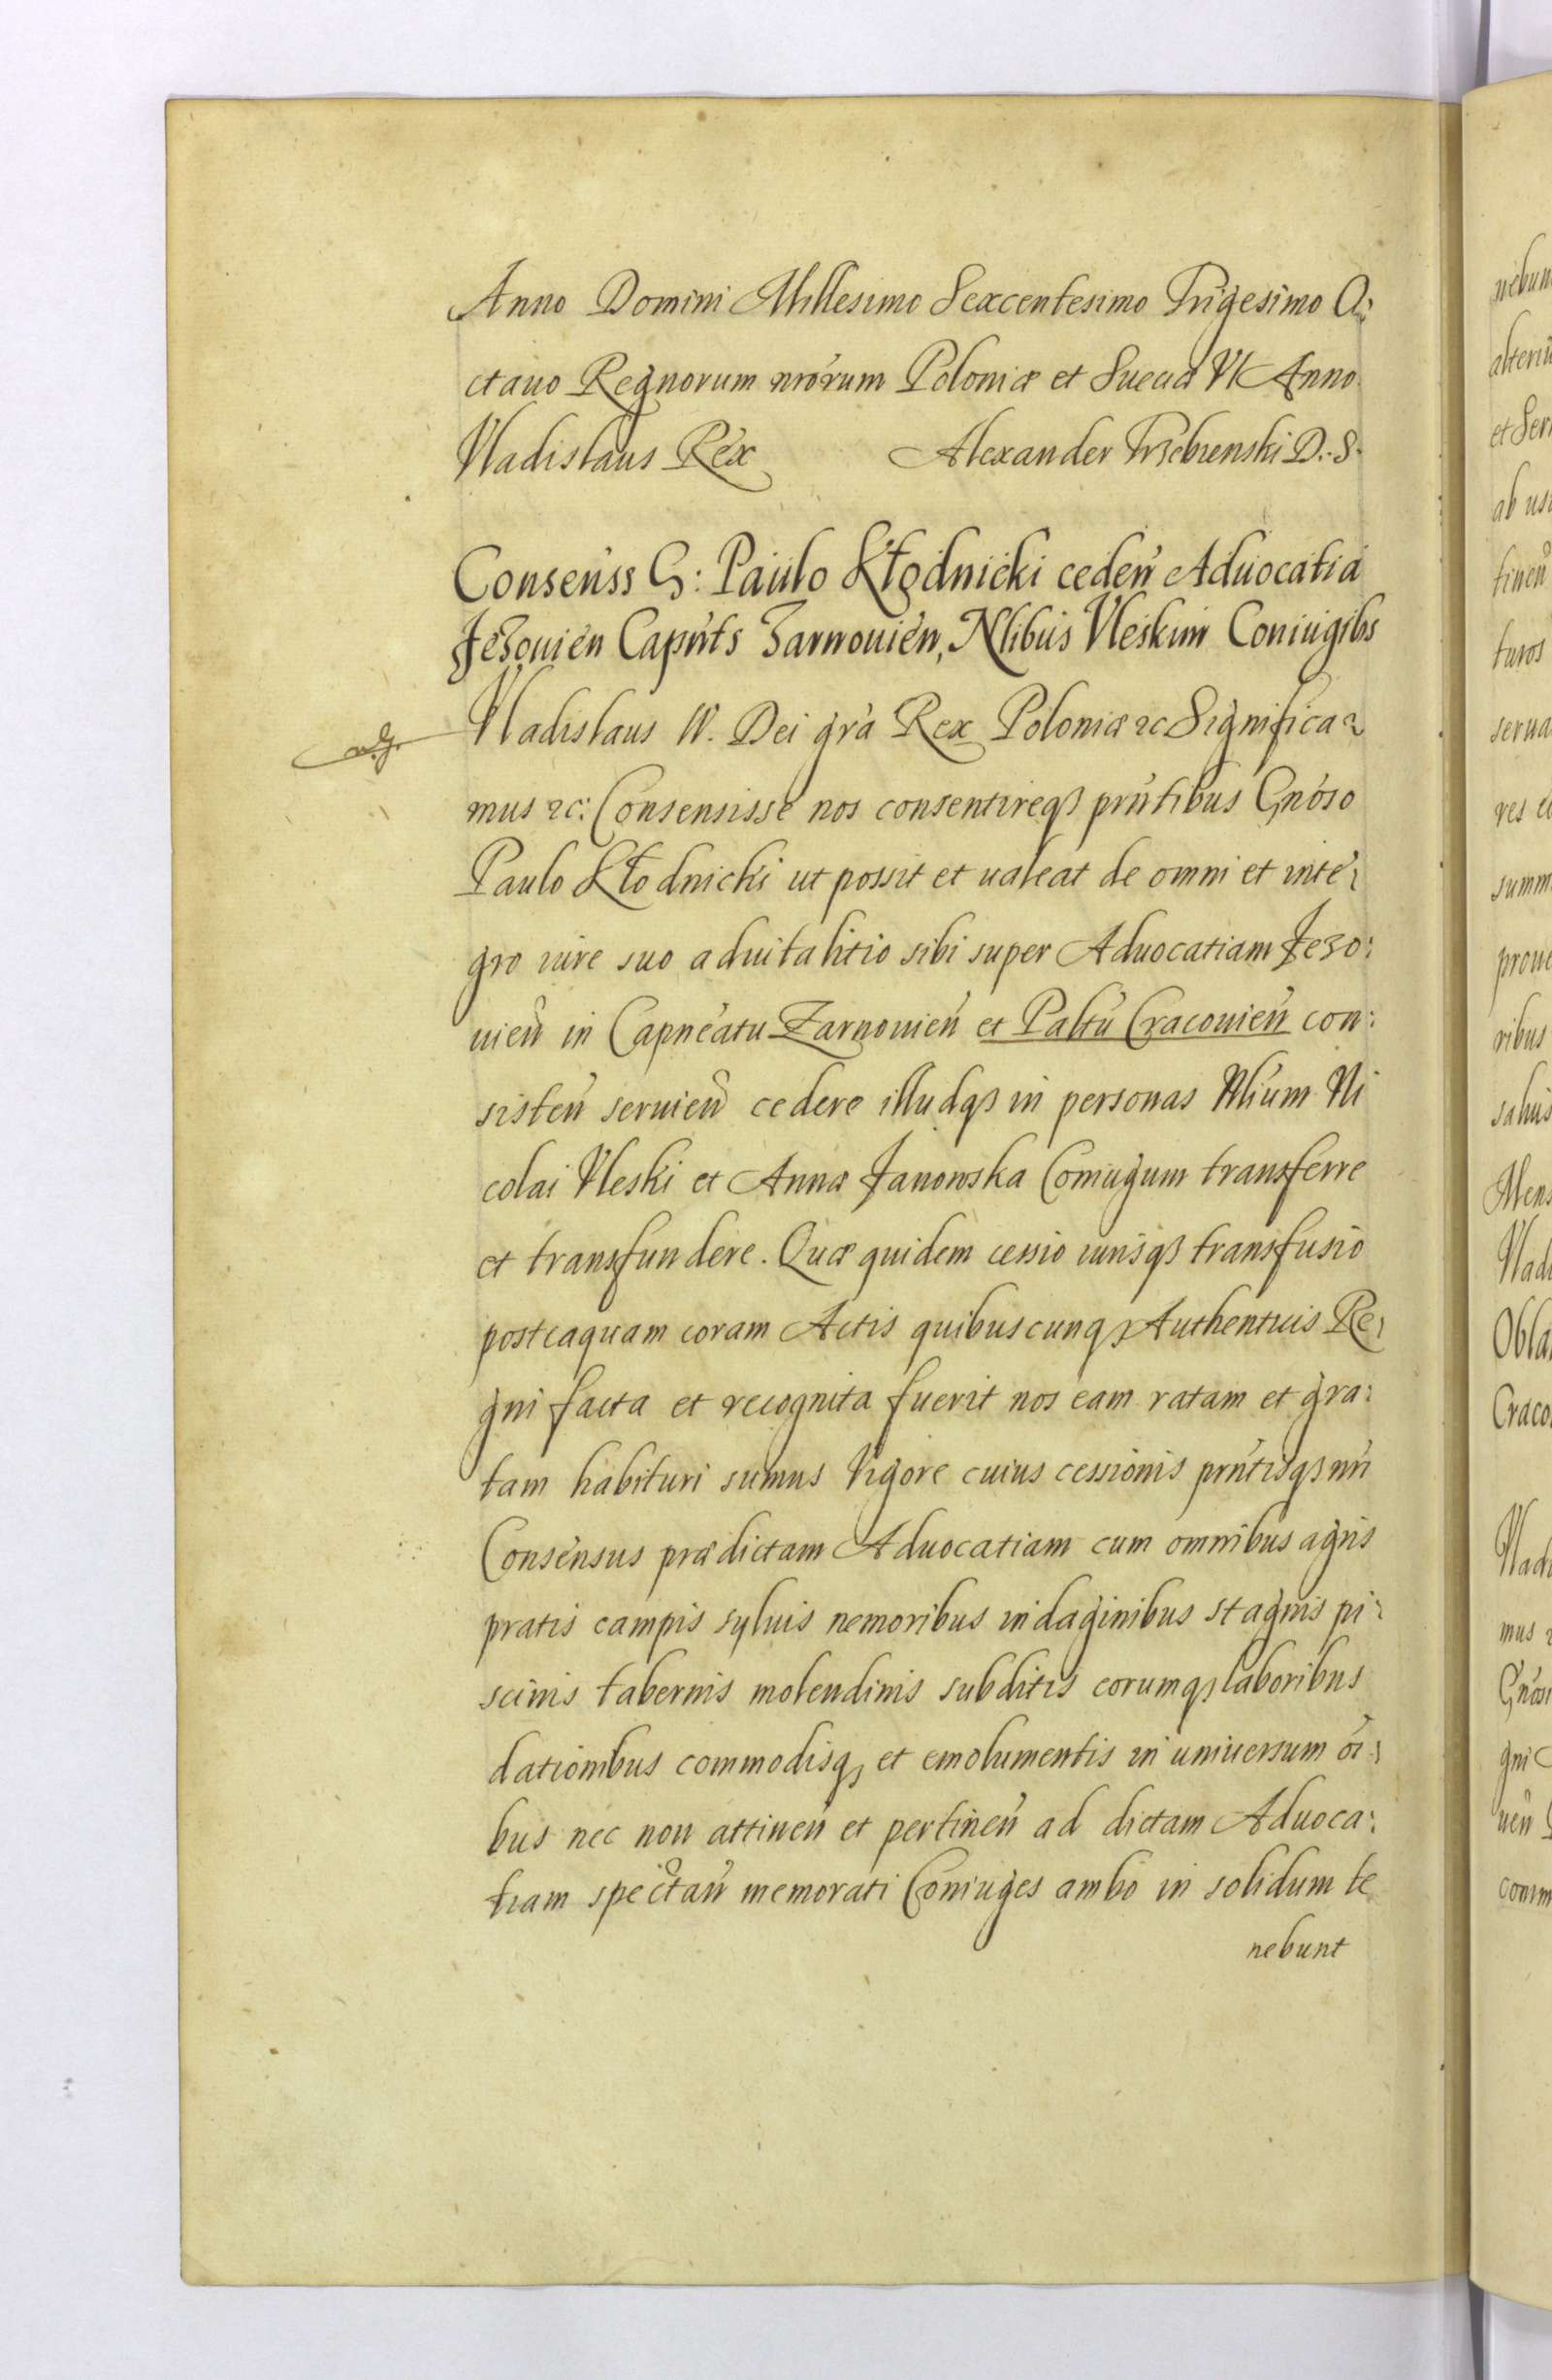 Anno Domini Millesimo Sexcentesimo Trigesimo O:
ctauo Regnorum nrórum Poloniæ et Sueciæ VI Anno
Vladislaus Rex Alexander Trzebienski D. S.
Consenss G: Paulo Kłodnicki ceden Aduocatiá
Jeżouien Capnts Zarnouien, Nlibus Vleskim Coniugibs
Vladislaus IV. Dei grà Rex Poloniæ &c Significa
mus &c: Consensisse nos consentireqȝ prntibus Gnóso
Paulo Kłodnicki ut possit et ualeat de omni et inte
gro iure suo aduitalitio sibi super Aduocatiam Jezo:
uien in Capneatu Zarnouien et Paltu Cracouien con:
sisten seruien cedere illudqȝ in personas Nlium Ni
colai Vleski et Annæ Janowska Coniugum transferre
et transfundere. Quæ quidem cessio iurisqȝ transfusio
posteaquam coram Actis quibuscunqȝ Authenticis Re
gni facta et recognita fuerit nos eam ratam et gra:
tam habituri sumus Vigore cuius cessionis prntisqȝ nri
Consensus prædictam Aduocatiam cum omnibus agris
pratis campis syluis nemoribus indaginibus stagnis pi
scinis tabernis molendinis subditis eorumqȝ laboribus
dationibus commodisqȝ et emolumentis in uniuersum oi
bus nec non attinen et pertinen ad dictam Aduoca:
tiam spectan memorati Coniuges ambo in solidum te
nebunt